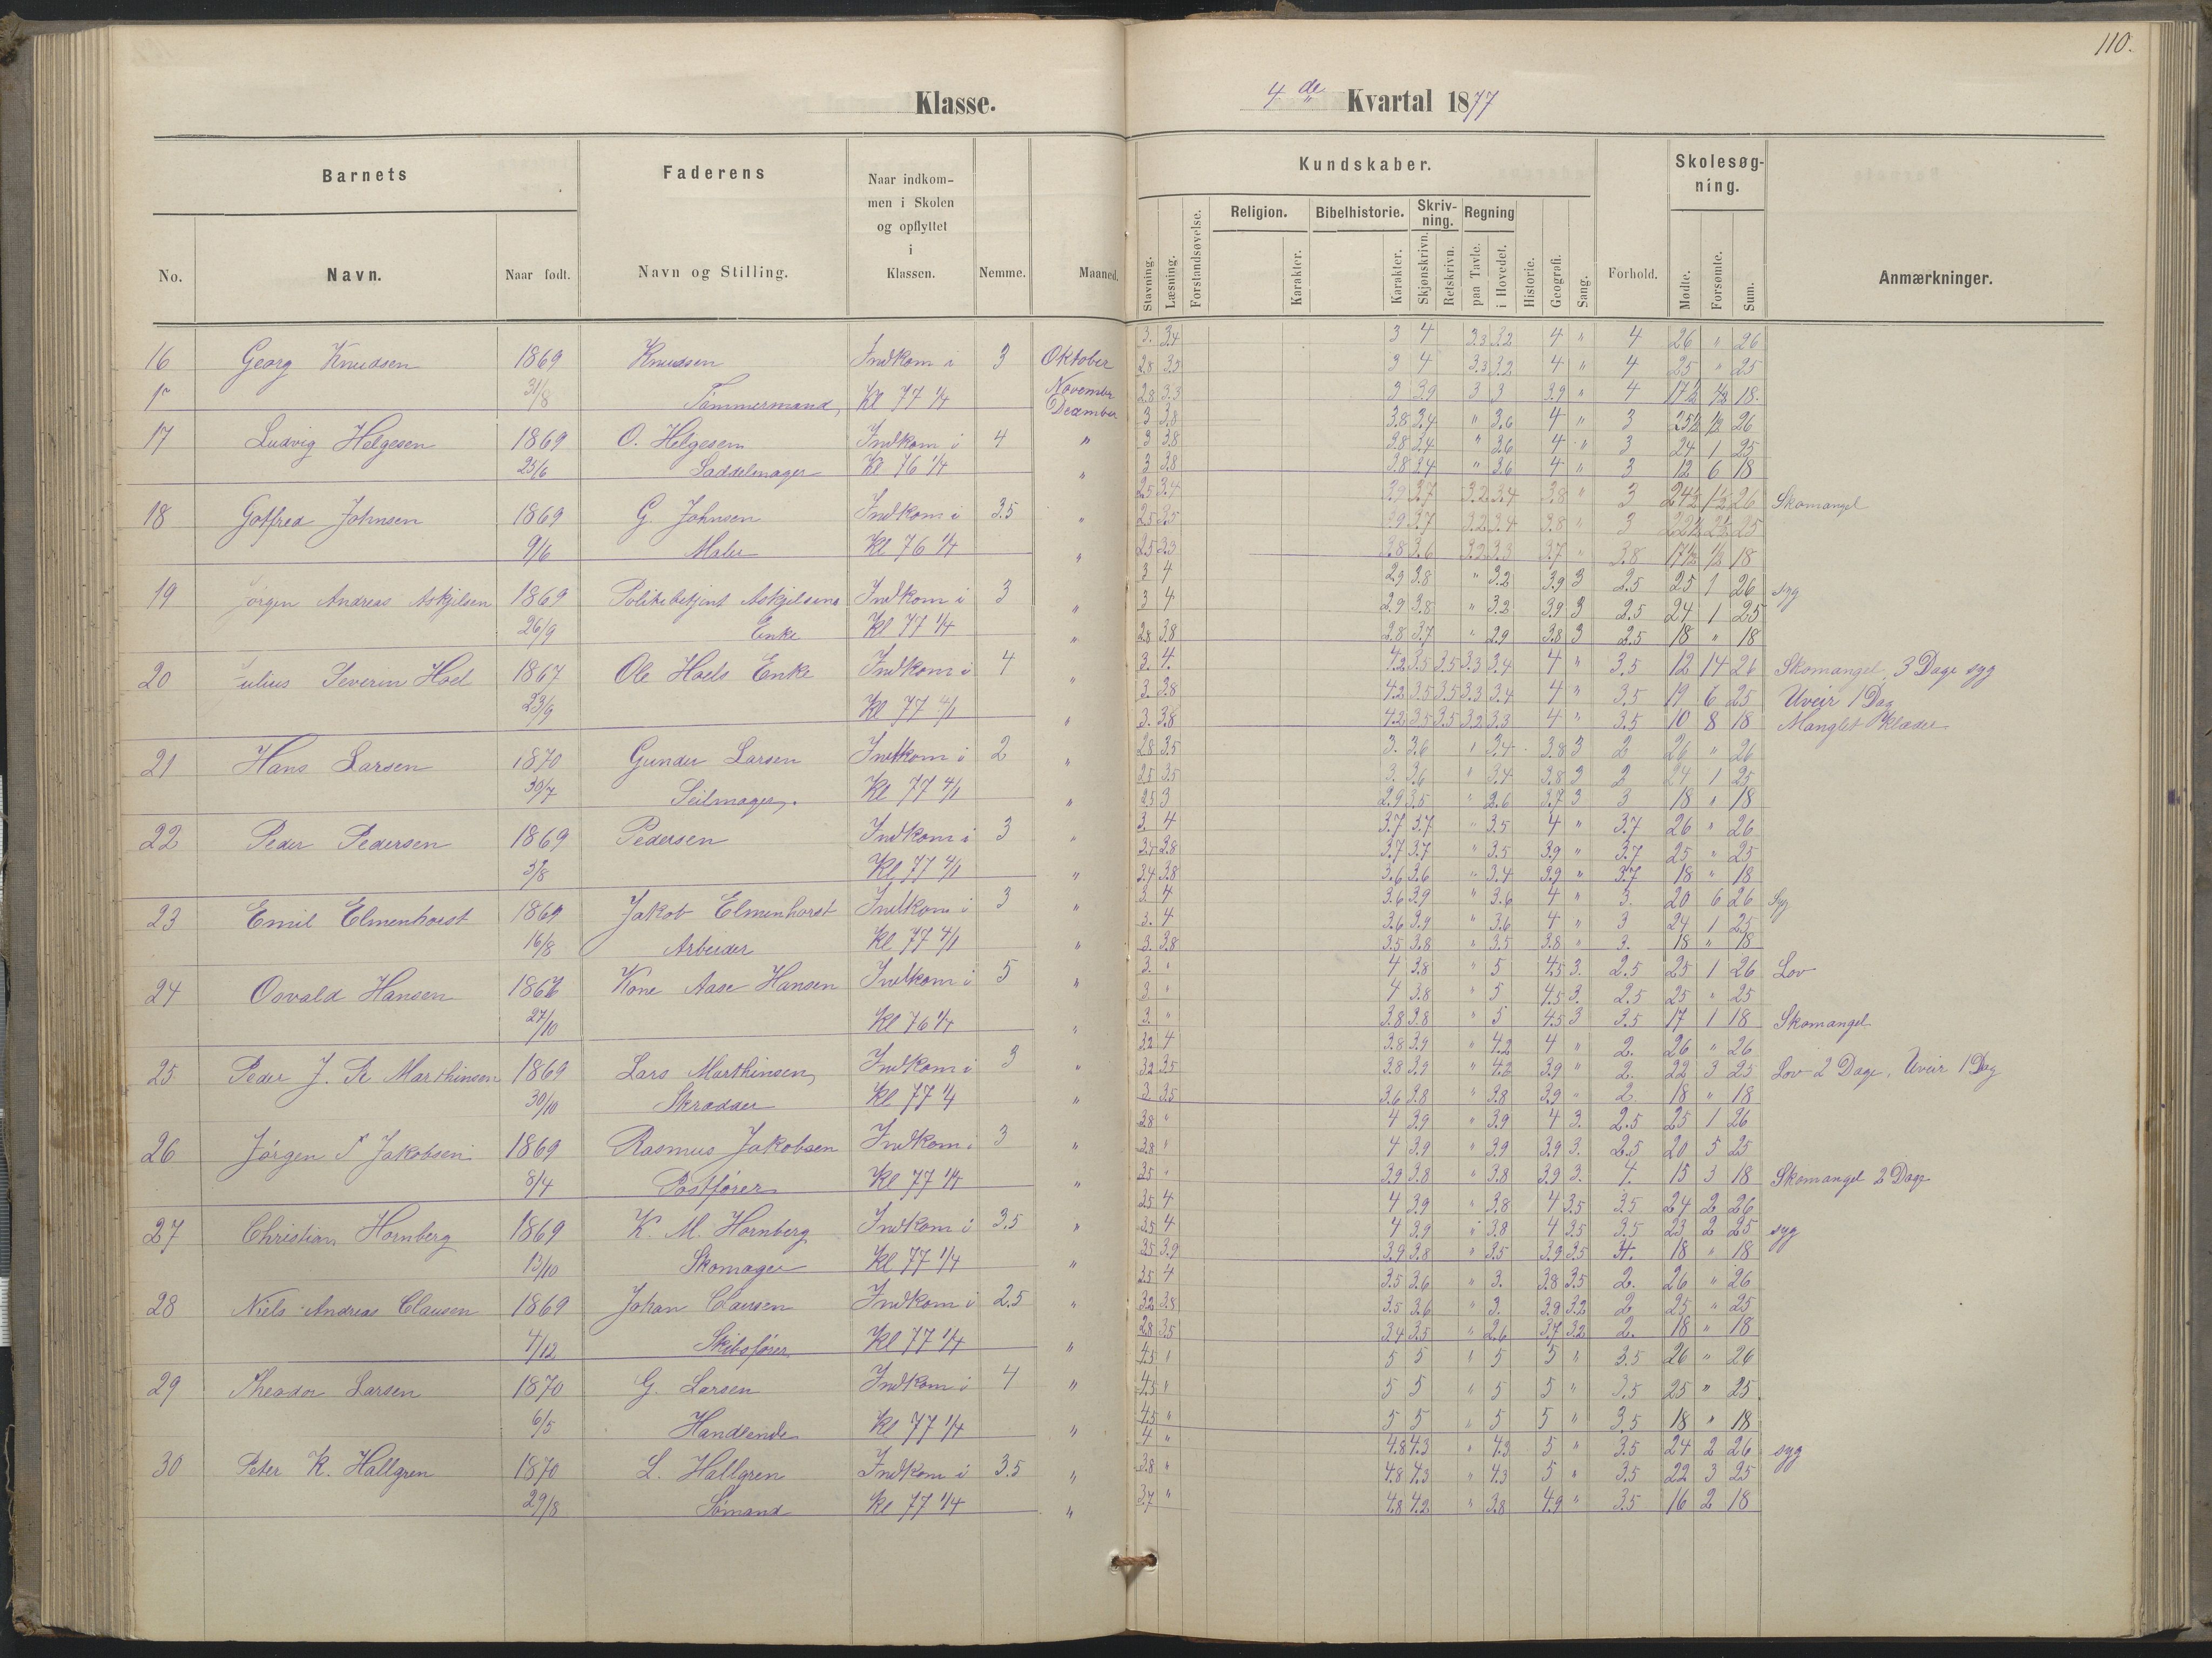 110.
Klasse.
4de Kvartal 1877
Barnets
Faderens
Naar indkom-
men i Skolen
og opflyttet
i
Klassen.
Nemme.
Maaned.
No.
Navn.
Naar født.
Navn og Stilling.
Kundskaber.
Stavning.
Læsning.
Forstandsøvelse.
Religion.
Karakter.
Bibelhistorie.
Karakter.
Skriv-
ning.
Skjønskrivn.
Retskrivn.
Regning
paa Tavle.
i Hovedet.
Historie.
Geografi.
Sang.
Forhold.
Skolesøg-
ning.
Mødte.
Forsømte.
Sum.
Anmærkninger.
16 Georg Knudsen 1869 Knudsen Indkom i 3 Oktober
31/8 Tømmermand, Kl 77 1/4 November
December
3. 3.4 3 4 3.3 3.2 4 " 4 26 " 26
2.8 3.3 3 4 3.3 3.2 4 " 4 25 " 25
2.8 3.3 3 3.9 3 3 3.9 " 4 17½ ½ 18.
17 Ludvig Helgesen 1869 O. Helgesen Indkom i 4 "
25/6 Saddelmager Kl 76 1/4 "
3 3.8 3.8 3.4 " 3.6 4 " 3 25½ ½ 26
3 3.8 3.8 3.4 " 3.6 4 " 3 24 1 25
3 3.8 3.8 3.4 " 3.6 4 " 3 12 6 18
18 Gotfred Johnsen 1869 G. Johnsen Indkom i 3.5 "
9/6 Maler Kl 76 1/4 "
2.5 3.4 3.9 3.7 3.2 3.4 3.8 " 3 24½ 1½ 26 Skomangel
2.5 3.5 3.9 3.7 3.2 3.4 3.8 " 3 22½ 2½ 25
2.5 3.3 3.8 3.6 3.2 3.3 3.7 " 3.8 17½ ½ 18
19 Jørgen Andreas Askjilsen 1869 Politibetjent Askjilsens Indkom i 3 "
26/9 Enke Kl 77 1/4 "
3 4 2.9 3.8 " 3.2 3.9 3 2.5 25 1 26 syg
3 4 2.9 3.8 " 3.2 3.9 3 2.5 24 1 25
2.8 3.8 2.8 3.7 " 2.9 3.8 3 2.5 18 " 18
20 Julius Severin Hoel 1867 Ole Hoels Enke Indkom i 4 "
23/9 Kl 77 4/1 "
3. 4. 4.2 3.5 3.5 3.3 3.4 4 " 3.5 12 14 26 Skomangel, 3 Dage syg
3. 3.8 4.2 3.5 3.5 3.3 3.4 4 " 3.5 19 6 25 Uveir 1 Dag
3. 3.8 4.2 3.5 3.5 3.2 3.3 4 " 3.5 10 8 18 Manglet Klæder
21 Hans Larsen 1870 Gunder Larsen Indkom i 2 "
30/7 Seilmager. Kl 77 4/1 "
2.8 3.5 3. 3.6 " 3.4 3.8 3 2 26 " 26
2.5 3.5 3. 3.6 " 3.4 3.8 3 2 24 1 25
2.5 3 2.9 3.5 " 2.6 3.7 3 3 18 " 18
22 Peder Pedersen 1869 Pedersen Indkom i 3 "
3/8 Kl 77 4/1 "
3. 4 3.7 3.7 " 3.5 4 " 3.7 26 " 26
3.4 3.8 3.7 3.7 " 3.5 3.9 " 3.7 25 " 25
3.4 3.8 3.6 3.6 " 3.4 3.9 " 3.7 18 " 18
23 Emil Elmenhorst 1869 Jakob Elmenhorst Indkom i 3 "
16/8 Arbeider Kl 77 4/1 "
3 4 3.6 3.9 " 3.6 4 " 3. 20 6 26 Syg
3. 4 3.6 3.9 " 3.6 4 " 3 24 1 25
3. 3.8 3.5 3.8 " 3.5 3.8 " 3. 18 " 18
24 Osvald Hansen 1867 Kone Aase Hansen Indkom i 5 "
27/10 Kl 76 1/4 "
3. " 4 3.8 " 5 4.5 3. 2.5 25 1 26 Lov
3 " 4 3.8 " 5 4.5 3. 2.5 25 " 25
3. " 3.8 3.8 " 5 4.5 3 3.5 17 1 18 Skomangel
25 Peder J. Marthinsen 1869 Lars Marthinsen, Indkom i 3 "
30/10 Skrædder Kl 77 1/4 "
3.2 4 3.8 3.9 " 4.2 4 " 2. 26 " 26
3.2 3.5 3.8 3.9 " 4.2 3.9 " 2. 22 3 25 Lov 2 Dage, Uveir 1 Dag
3. 3.5 3.6 3.8 " 3.8 3.9 " 2 18 " 18
26 Jørgen Jakobsen 1869 Rasmus Jakobsen Indkom i 3 "
8/4 Postfører Kl 77 1/4 "
3.8 " 4 3.9 " 3.9 4 3. 2.5 25 1 26
3.8 " 4 3.9 " 3.9 3.9 3. 2.5 20 5 25
3.5 " 3.9 3.8 " 3.8 3.9 3. 4. 15 3 18 Skomangel 2 Dage
27 Christian Hornberg 1869 K. M. Hornberg Indkom i 3.5 "
13/10 Skomager Kl 77 1/4 "
3.5 4 4 3.9 " 3.8 4 3.5 3.5 24 2 26
3.5 4 4 3.9 " 3.8 4 3.5 3.5 23 2 25 syg
3.5 3.9 3.9 3.8 " 3.5 3.9 3.5 18 " 18
28 Niels Andreas Clausen 1869 Johan Clausen Indkom i 2.5 "
4/12 Skibsfører Kl 77 1/4 "
3.5 4 3.5 3.6 " 3. 3.8 3.5 2. 26 " 26
3.2 3.8 3.5 3.6 " 3. 3.8 3.2 2 25 " 25
2.8 3.5 3.4 3.5 " 2.6 3.7 3.2 2. 18 " 18
29 Theodor Larsen 1870 G. Larsen Indkom i 4 "
6/5 Handlende Kl 77 1/4 "
4.5 " 5 5 " 5 5 " 3.5 26 " 26
4.5 " 5 5 " 5 5 " 3.5 25 " 25
4.5 " 5 5 " 5 5 " 3.5 18 " 18
30 Peter K. Hallgren 1870 L. Hallgren Indkom i 3.5 "
29/8 Sømand Kl 77 1/4 "
4 " 4.8 4.3 " 4.3 5 " 3.5 24 2 26 syg
3.8 " 4.8 4.3 " 4.3 5 " 3.5 22 3 25
3.7 " 4.8 4.2 " 3.8 4.9 " 3.5 16 2 18